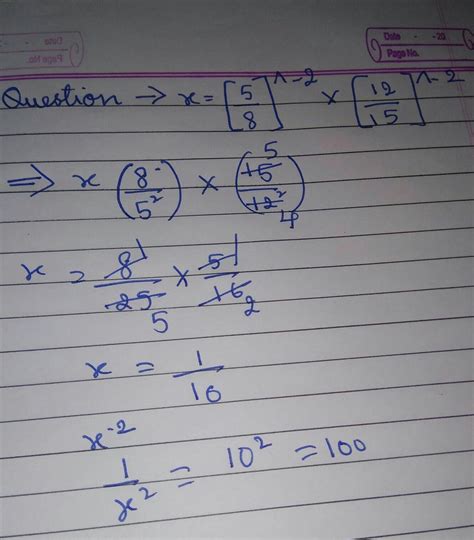 Date - - 20
Page No.
Question → x = [5/8]^-2 × [12/15]^-2
⇒ x (8/5²) × (15 5/12² 4)
x = 8 1/25 5 × 5 1/16 2
x = 1/10
x^-2
1/x² = 10² = 100